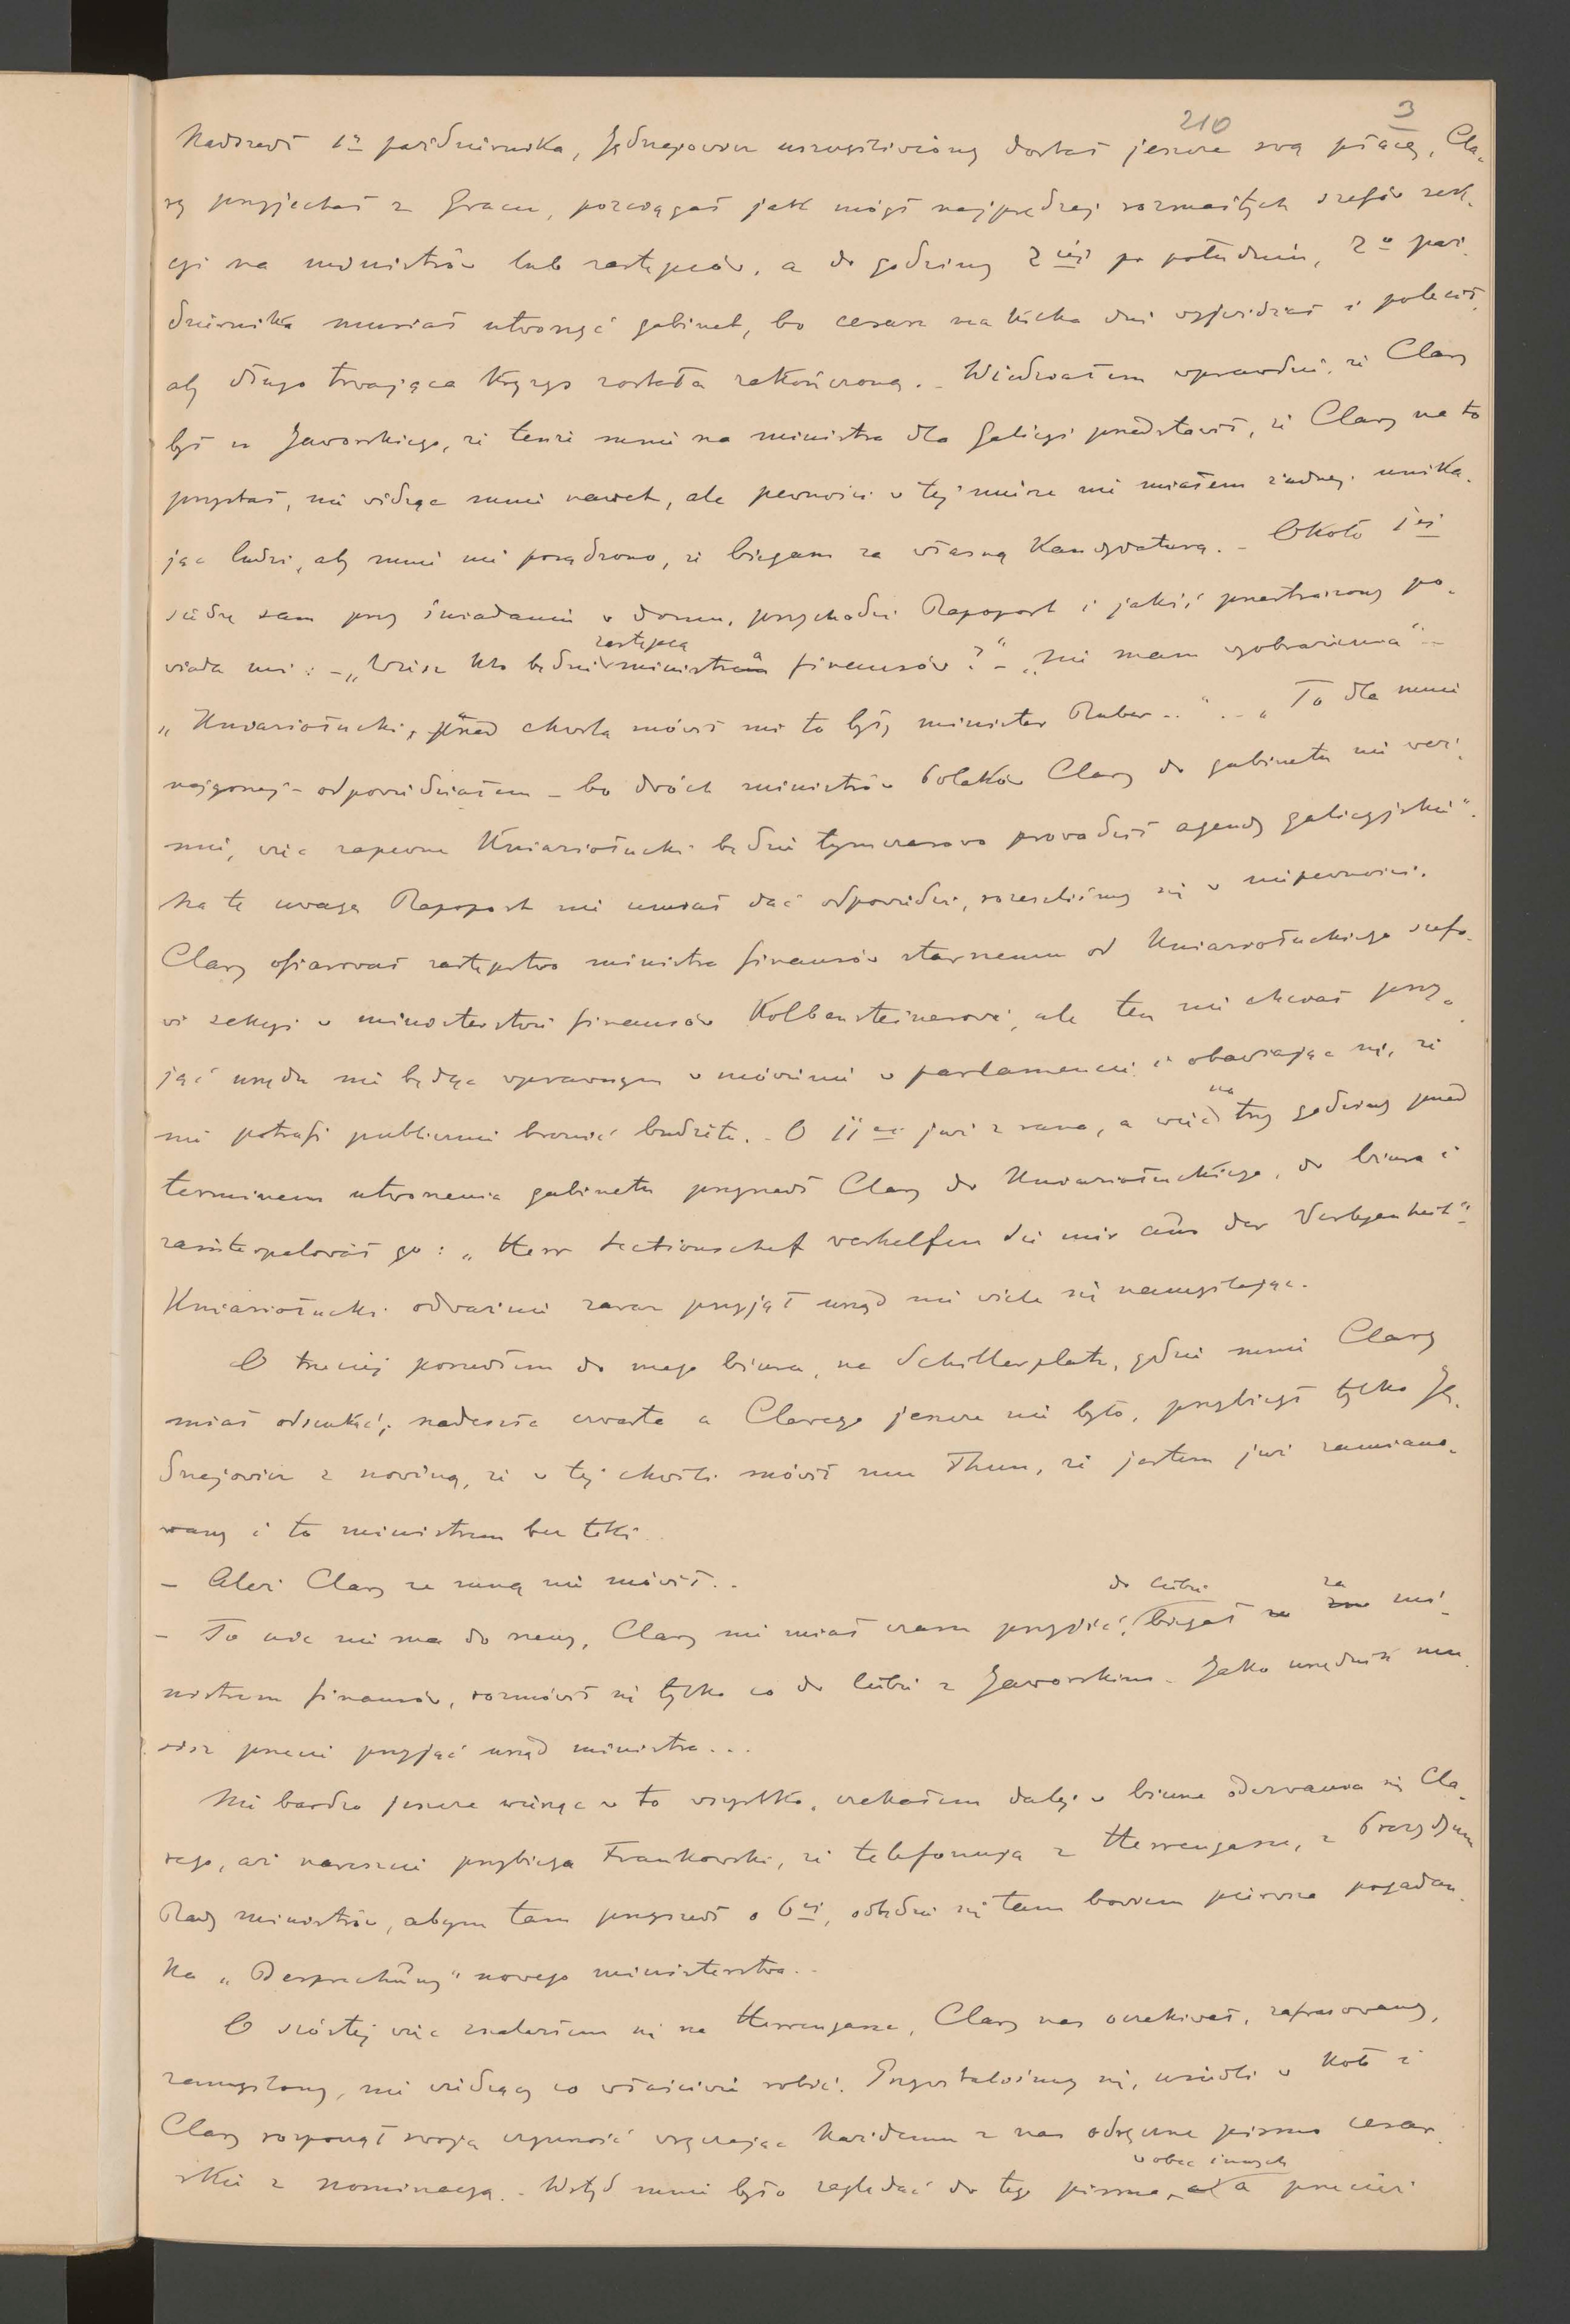 210 3
Nadszedł 1o października, Jędrzejowicz uszczęśliwiony dostał jeszcze swą płacę, Cla-
ry przyjechał z Gracu, pozciągał jak mógł najprędzej rozmaitych szefów sek-
cji na ministrów lub zastępców, a do godziny 2iej po południu, 2o paź-
dziernika musiał utworzyć gabinet, bo cesarz na kilka dni wyjeżdżał i polecił,
aby długo trwająca kryzys została zakończoną. - Wiedziałem wprawdzie, że Clary
był u Jaworskiego, że tenże mnie na ministra dla Galicyi przedstawił, że Clary na to
przystał, nie widząc mnie nawet, ale pewności w tej mierze nie miałem żadnej, unika-
jąc ludzi, aby mnie nie posądzono, że biegam za własną kandydaturą. - Około 1ej
siedzę sam przy śniadaniu w domu, przychodzi Rapoport i jakiś przestraszony po-
wiada mi: - „Wiesz kto będzie zastępcą ministra finansów?" - „Nie mam wyobrażenia" -
„Kniaziołucki, przed chwilą mówił mi to były minister Ruber.." - „To dla mnie
najgorzej - odpowiedziałem - bo dwóch ministrów Polaków Clary do gabinetu nie weź-
mie, więc zapewne Kniaziołucki będzie tymczasowo prowadził agendy galicyjskie".
Na tę uwagę Rapoport nie umiał dać odpowiedzi, rozeszliśmy się w niepewności.
Clary ofiarował zastępstwo ministra finansów starszemu od Kniaziołuckiego szefo-
wi sekcyi w ministerstwie finansów Kolbensteinerowi, ale ten nie chciał przy-
jąć urzędu nie będąc wprawnym w mówieniu w parlamencie i obawiając się, że
nie potrafi publicznie bronić budżetu. - O 11ej już z rana, a więc na trzy godziny przed
terminem utworzenia gabinetu przyszedł Clary do Kniaziołuckiego, do biura i
zainterpelował go: „Herr Sectionschef verhelfen Sie mir aus der Verlegenheit" -
Kniaziołucki odważnie zaraz przyjął urząd nie wiele się namyślając.
O trzeciej poszedłem do mego biura, na Schillerplatz, gdzie mnie Clary
miał odszukać; nadeszła czwarta a Clarego jeszcze nie było, przybiegł tylko Ję-
drzejowicz z nowiną, że w tej chwili mówił mu Thun, że jestem już zamiano-
wany i to ministrem bez teki..
- Ależ Clary ze mną nie mówił..
- To nic nie ma do rzeczy, Clary nie miał czasu przyjść, biegał do ciebie za mi-
nistrem finansów, rozmówił się tylko co do ciebie z Jaworskim. Jako urzędnik mu-
sisz przecie przyjąć urząd ministra...
Nie bardzo jeszcze wierząc w to wszystko, czekałem dalej w biurze odezwania się Cla-
rego, aż nareszcie przybiega Frankowski, że telefonują z Herrengasse, z Prezydyum
Rady ministrów, abym tam przyszedł o 6ej, odbędzie się tam bowiem pierwsza pogadan-
ka „Besprechung" nowego ministerstwa..
O szóstej więc znalazłem się na Herrengasse, Clary nas oczekiwał, zafrasowany,
zamyślony, nie widzący co właściwie robić. Przywitaliśmy się, usiedli w koło i
Clary rozpoczął swoją czynność wręczając każdemu z nas odręczne pismo cesar-
skie z nominacyą. - Wstyd mnie było zaglądać do tego pisma wobec innych, a przecież